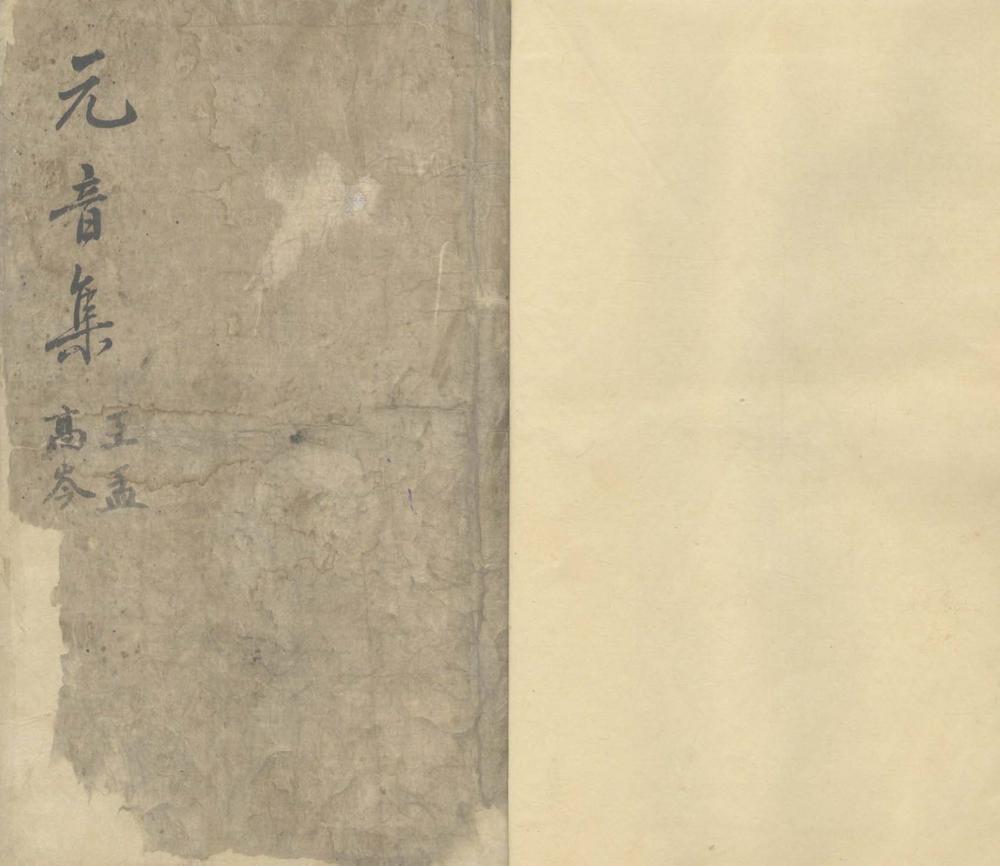 元音集
王孟
高岑